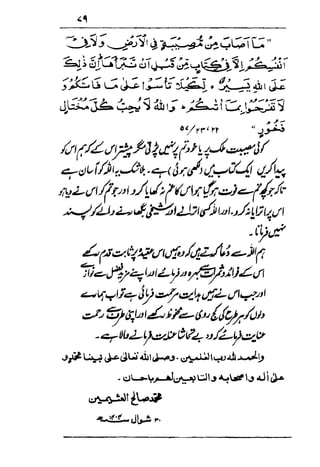 ۷۹
"مَا أَصَابَ مِنْ مُصِيبَةٍ فِي الْأَرْضِ وَلَا فِي
أَنْفُسِكُمْ إِلَّا فِي كِتَابٍ مِنْ قَبْلِ أَنْ نَبْرَأَهَا إِنَّ ذَلِكَ
عَلَى اللهِ يَسِيرٌ ٭ لِكَيْلَا تَأْسَوْا عَلَى مَا فَاتَكُمْ وَ
لَا تَفْرَحُوا بِمَا آتَاكُمْ ٭ وَاللهُ لَا يُحِبُّ كُلَّ مُخْتَالٍ
فَخُورٍ" ۲۲، ۲۳/۵۷
کوئی مصیبت ملک پر یا خود تم پر نہیں پڑتی مگر پیشتر اس کے کہ ہم اس کو
پیدا کریں ایک کتاب میں لکھی ہوئی ہے۔ بلاشک یہ اللہ کو آسان ہے
تاکہ جو چیز تم سے فوت ہو گئی ہو اس کا غم نہ کھایا کرو اور جو تم کو اس نے دیا ہو
اس پر اترایا نہ کرو، اور اللہ کسی اترانے اور شیخی بگھارنے والے کو پسند
نہیں فرماتا۔
ہم اللہ سے دعا کرتے ہیں کہ وہ ہمیں اس عقیدہ پر ثابت قدم رکھے
اس کے فوائد و ثمرات سے بہرہ ور فرمائے اور اپنے مزید فضل سے نوازے
اور جب اس نے ہمیں ہدایت مرحمت فرمائی ہے تو اب ہمارے
دلوں کو ہر طرح کی کج روی سے محفوظ رکھے اور اپنی طرف سے رحمت
عنایت فرمائے کہ وہ بے تحاشا عنایت فرمانے والا ہے۔
والحمد لله رب العلمين۔ وصلى الله تعالى على نبينا محمد و
على اله واصحابه والتابعين لهم باحسان۔
محمد صالح العثیمین
۳۰ شوال ۱۴۰۴ھ